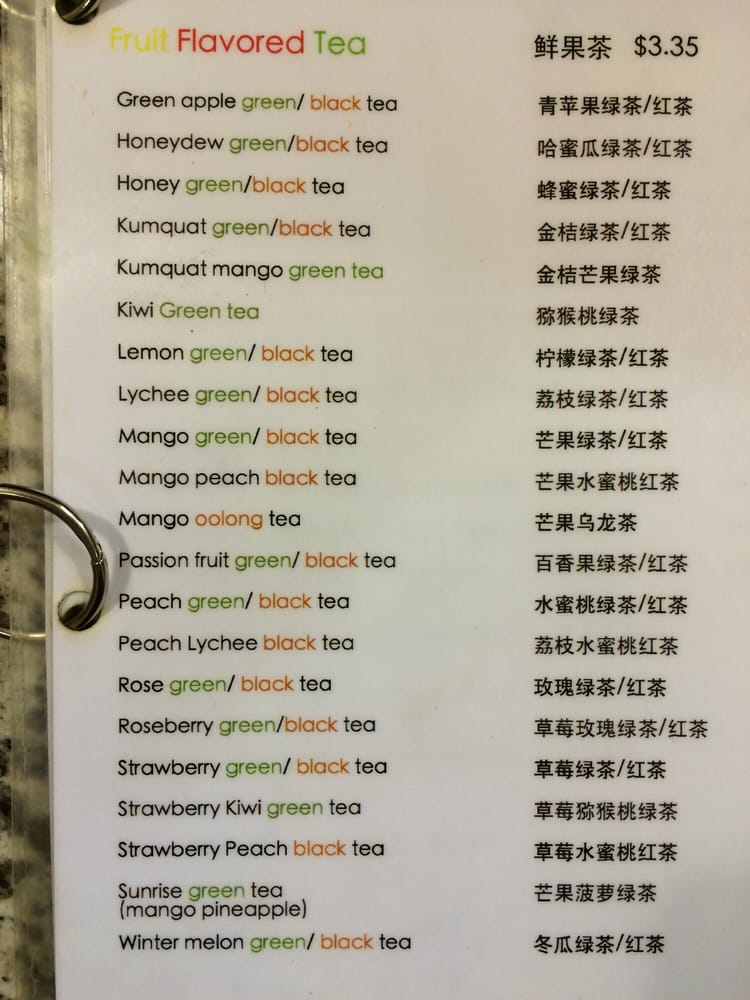 Fruit Flavored Tea 鲜果茶 $3.35
Green apple green/ black tea 青苹果绿茶/红茶
Honeydew green/black tea 哈蜜瓜绿茶/红茶
Honey green/black tea 蜂蜜绿茶/红茶
Kumquat green/black tea 金桔绿茶/红茶
Kumquat mango green tea 金桔芒果绿茶
Kiwi Green tea 猕猴桃绿茶
Lemon green/ black tea 柠檬绿茶/红茶
Lychee green/ black tea 荔枝绿茶/红茶
Mango green/ black tea 芒果绿茶/红茶
Mango peach black tea 芒果水蜜桃红茶
Mango oolong tea 芒果乌龙茶
Passion fruit green/ black tea 百香果绿茶/红茶
Peach green/ black tea 水蜜桃绿茶/红茶
Peach Lychee black tea 荔枝水蜜桃红茶
Rose green/ black tea 玫瑰绿茶/红茶
Roseberry green/black tea 草莓玫瑰绿茶/红茶
Strawberry green/ black tea 草莓绿茶/红茶
Strawberry Kiwi green tea 草莓猕猴桃绿茶
Strawberry Peach black tea 草莓水蜜桃红茶
Sunrise green tea 芒果菠萝绿茶
(mango pineapple)
Winter melon green/ black tea 冬瓜绿茶/红茶